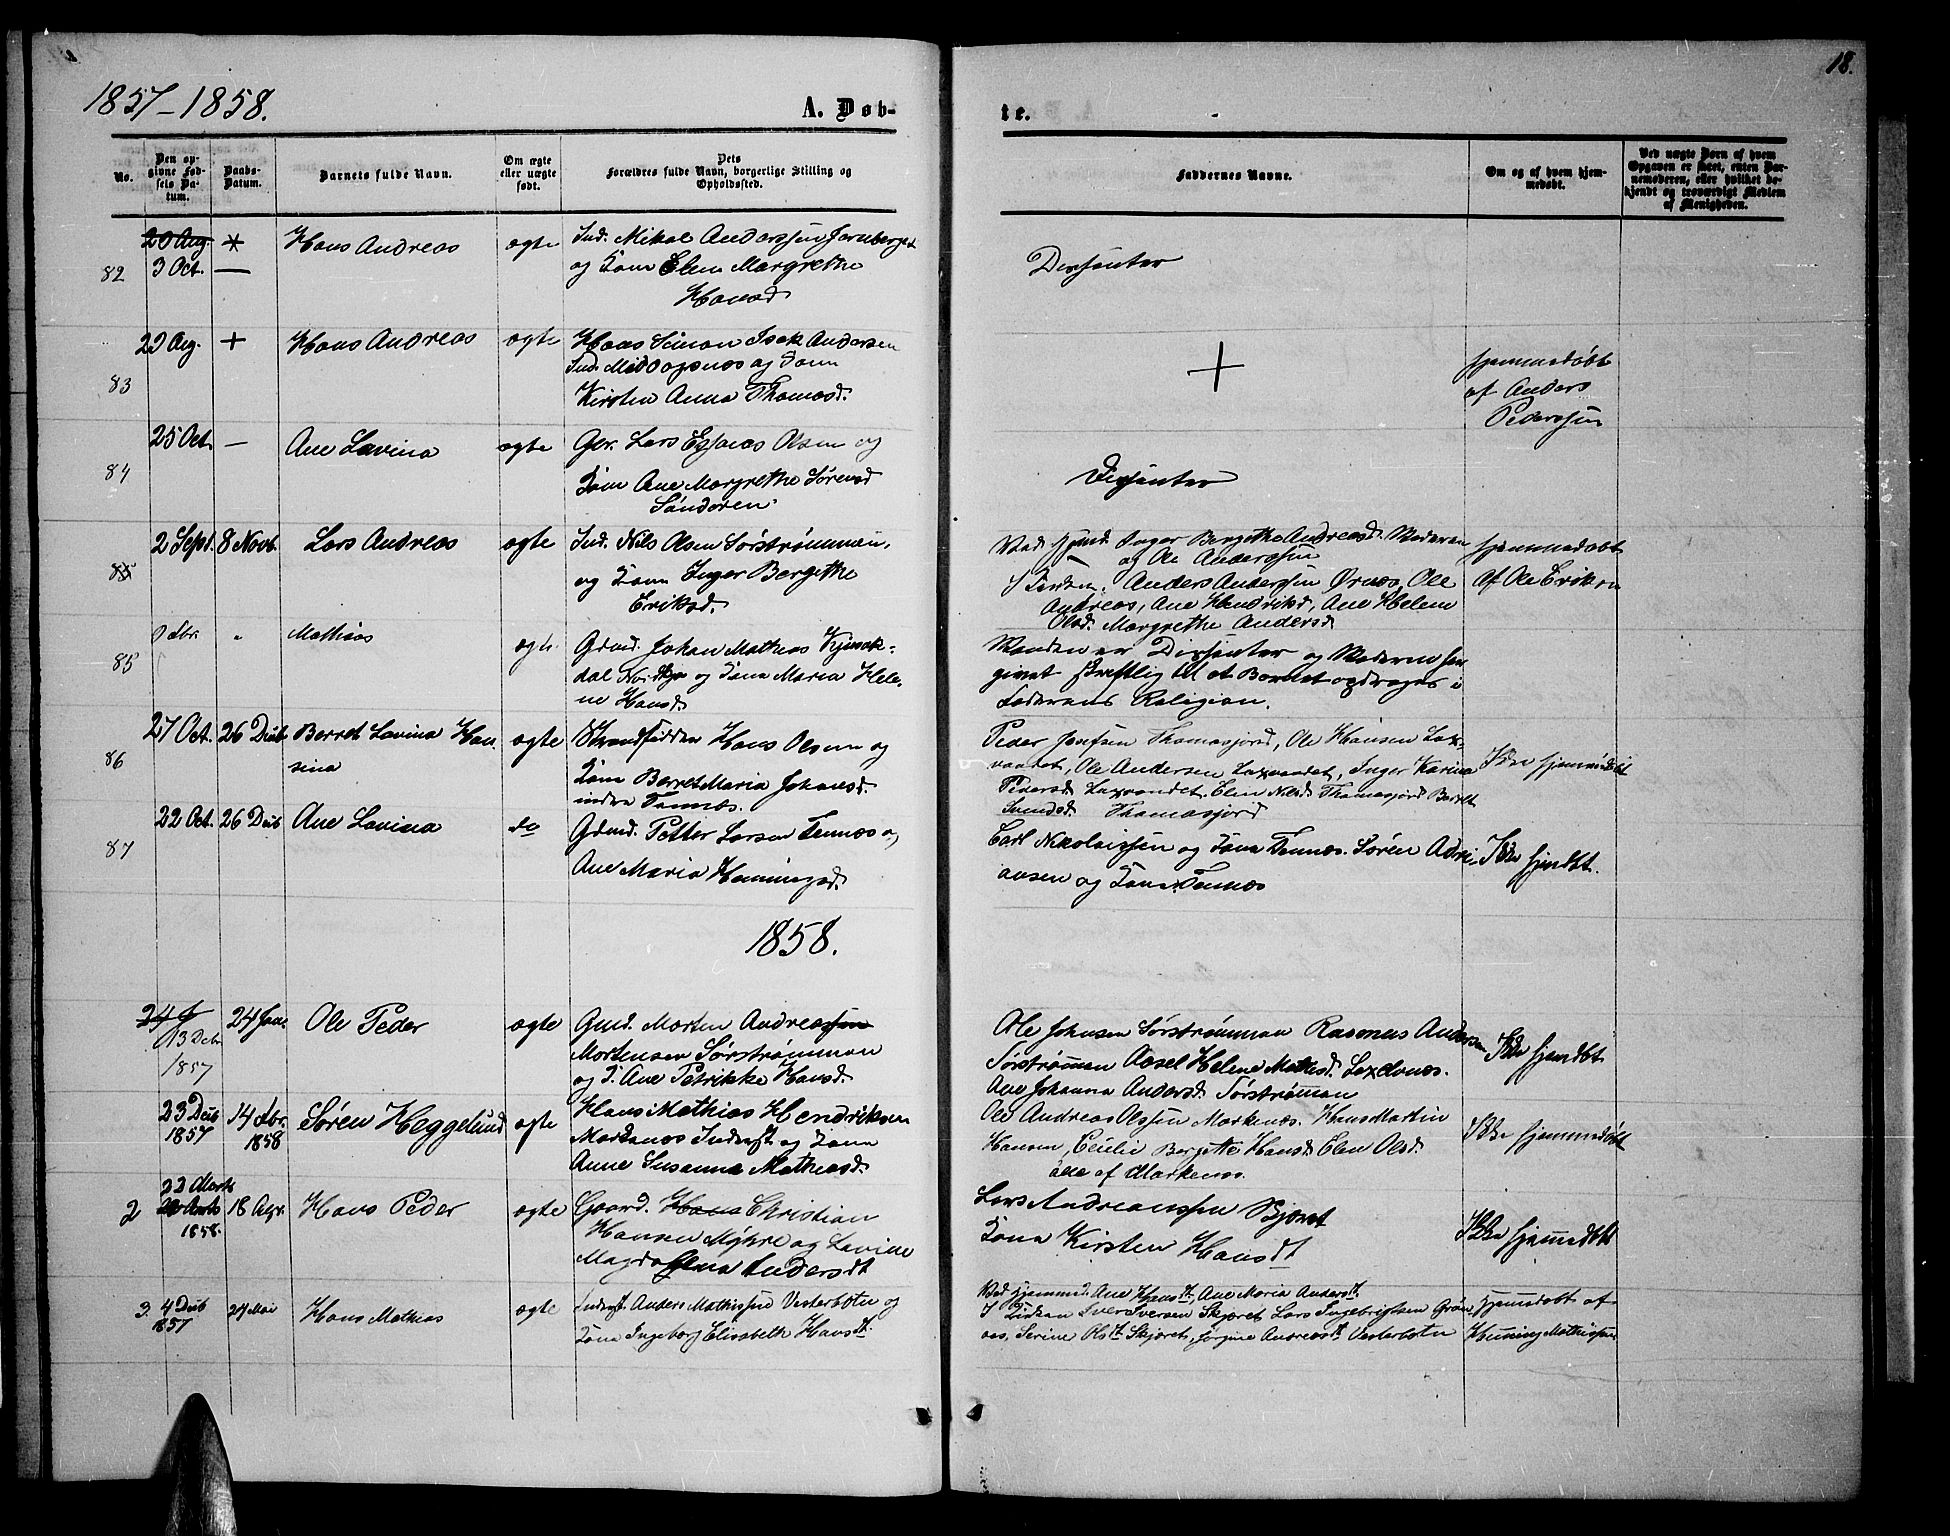 1857-1858.
A. Døb-
te.
18.
No.
Den op-
givne Fød-
sels Da-
tum.
Daabs-
Datum.
Barnets fulde Navn.
Om ægte
eller uægte
født.
Dets
Forældres fulde Navn, borgerlige Stilling og
Opholdssted.
Faddernes Navne.
Om og af hvem hjem-
medøbt.
Ved uægte Born af hvem
Opgaven er skeet, enten Bar-
nemoderen, eller hvilket be-
kjendt og troværdigt Medlem
af Menigheden.
82
20 Aug.
3 Oct.
Hans Andreas
ægte
Ind. Mikal Anderssen
og Kone Elen Margrethe
Hansd
Dissenter
83
29 Aug.
+
Hans Andreas
ægte
Hans Simon Isak Andersen
Ind. og Kone
Kirsten Anna Thomasd.
+
hjemmedøbt
af Anders
Pederssen
84
25 Oct.
—
Ane Lavina
ægte
Lars Esaias Olsen og
Kone Ane Margrethe Sørensd
Sandøren
Dissenter
85
2 Sept.
8 Novb.
Lars Andreas
ægte
Ind. Nils Olsen Sørstrømmen,
og Kone Inger Bergethe
Eriksd.
Ved Hjemd. Inger Bergethe Andreasd. Moderen
og Ole Anderssen
I Kirken. Anders Anderssen Ørnes, Ole
Andreas, Ane Hendriksd, Ane Helene
Olsd. Margrethe Andersd
hjemmedøbt
af Ole Eriksen
85
Mathias
ægte
Gmd. Johan Mathias
og Kone Maria Hele-
ne Hansd
Manden er Dissenter og Moderen har
givet skriftlig til at Barnet opdrages i
Faderens Religion.
86
27 Oct.
26 Decb
Berret Lavina Han
sina
ægte
Strandsidder Hans Olsen og
Kone Berret Maria Johansd.
indre Tannæs.
Peder Jensen Thomasjord, Ole Hansen Lax-
vandet, Ole Andersen Laxvandet, Inger Karina
Pedersd Laxvandet. Elen Nilsd Thomasjord Berret
Svendsd. Thomasjord
Ikke hjemmedøbt
87
22 Oct.
26 Decb
Ane Lavina
do
Gdmd. Petter Larsen Tennæs og
Ane Maria Henningsd.
Carl Nikolaissen og Kone Tennæs. Søren Adri-
ansen og Kone. Tennæs
Ikke hjemdbt.
1858.
24 J
13 Decbr
1857
24 Jan.
Ole Peder
ægte
Gmd. Morten Andreassen
Mortensen Sørstrømmen
og K. Ane Petrikke Hansd.
Ole Johnsen Sørstrømmen Rasmus Andersen
Sørstrømmen Axsel Helene Mathisd. Laxelvnes.
Ane Johanna Andersd. Sørstrømmen
Ikke hjemdbt.
23 Decb
1857
14 Fbr.
1858
Søren Heggelund
ægte
Hans Mathias Hendriksen
Markenæs Inderst og Kone
Anne Susanna Mathiasd.
Ole Andreas Olssen Markenæs. Hans Martin
Hansen, Cecilie Bergette Hansd. Elen Olsd.
alle af Markenæs.
Ikke hjemmedøbt
2
22 Marts
1858.
18 Apr.
Hans Peder
ægte
Gaard. Hans Christian
Hansen Mykre og Lavine
Magdalena Andersdt
Lars Andreanssen Bjoret
Kone Kirsten Hansdt
Ikke hjemmedbt
3.
4 Decb
1857
24 Mai
Hans Mathias
ægte
Inderst. Anders Mathissen Vesterbotn og
Kone Ingeborg Elisabeth Hansdt.
Ved Hjemmed. Ane Hansdt, Ane Maria Andersdt.
I Kirken Iver Iversen Skjæret Lars Ingebrigtsen Grøn
næs, Serine Olsdt Skjæret, Jørgine Andreasdt Vesterbotn
Hjemdøbt af
Henning Mathissen